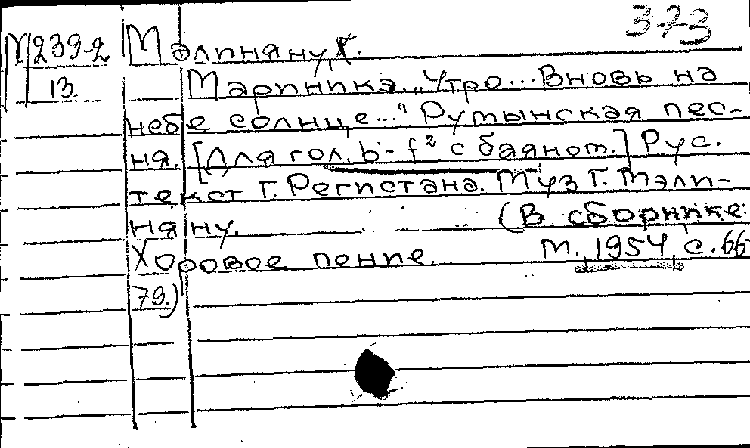 373
М 239-2 Мэлиняну, Х.
13 Мариника. „Утро... Вновь на
небе солнце..." Румынская пес-
ня. [Для гол. b - f² с баяном.] Рус.
текст Г. Регистана. Муз Г. Мэли-
няну. (В сборнике:
Хоровое пение. М., 1954, с. 66
79.)